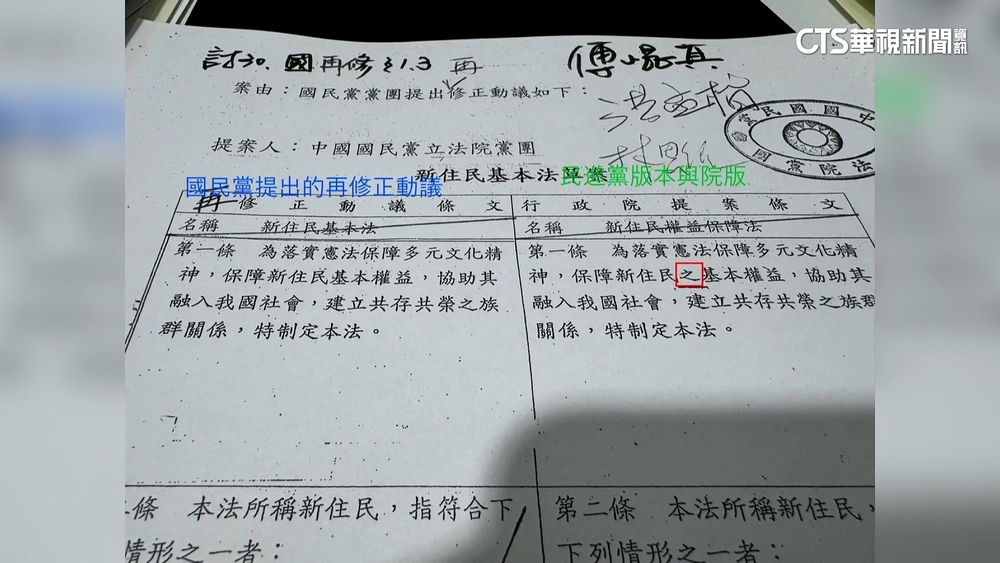 CTS華視新聞資訊
討30. 國再修 31.3 再 傅崐萁
案由：國民黨黨團提出修正動議如下：
洪孟楷
提案人：中國國民黨立法院黨團
新住民基本法草案
國民黨提出的再修正動議
民進黨版本與院版
再修正動議條文
行政院提案條文
名稱 新住民基本法
名稱 新住民權益保障法
第一條 為落實憲法保障多元文化精
神，保障新住民基本權益，協助其
融入我國社會，建立共存共榮之族
群關係，特制定本法。
第一條 為落實憲法保障多元文化精
神，保障新住民之基本權益，協助其
融入我國社會，建立共存共榮之族群
關係，特制定本法。
條 本法所稱新住民，指符合下
情形之一者：
第二條 本法所稱新住民，
下列情形之一者：